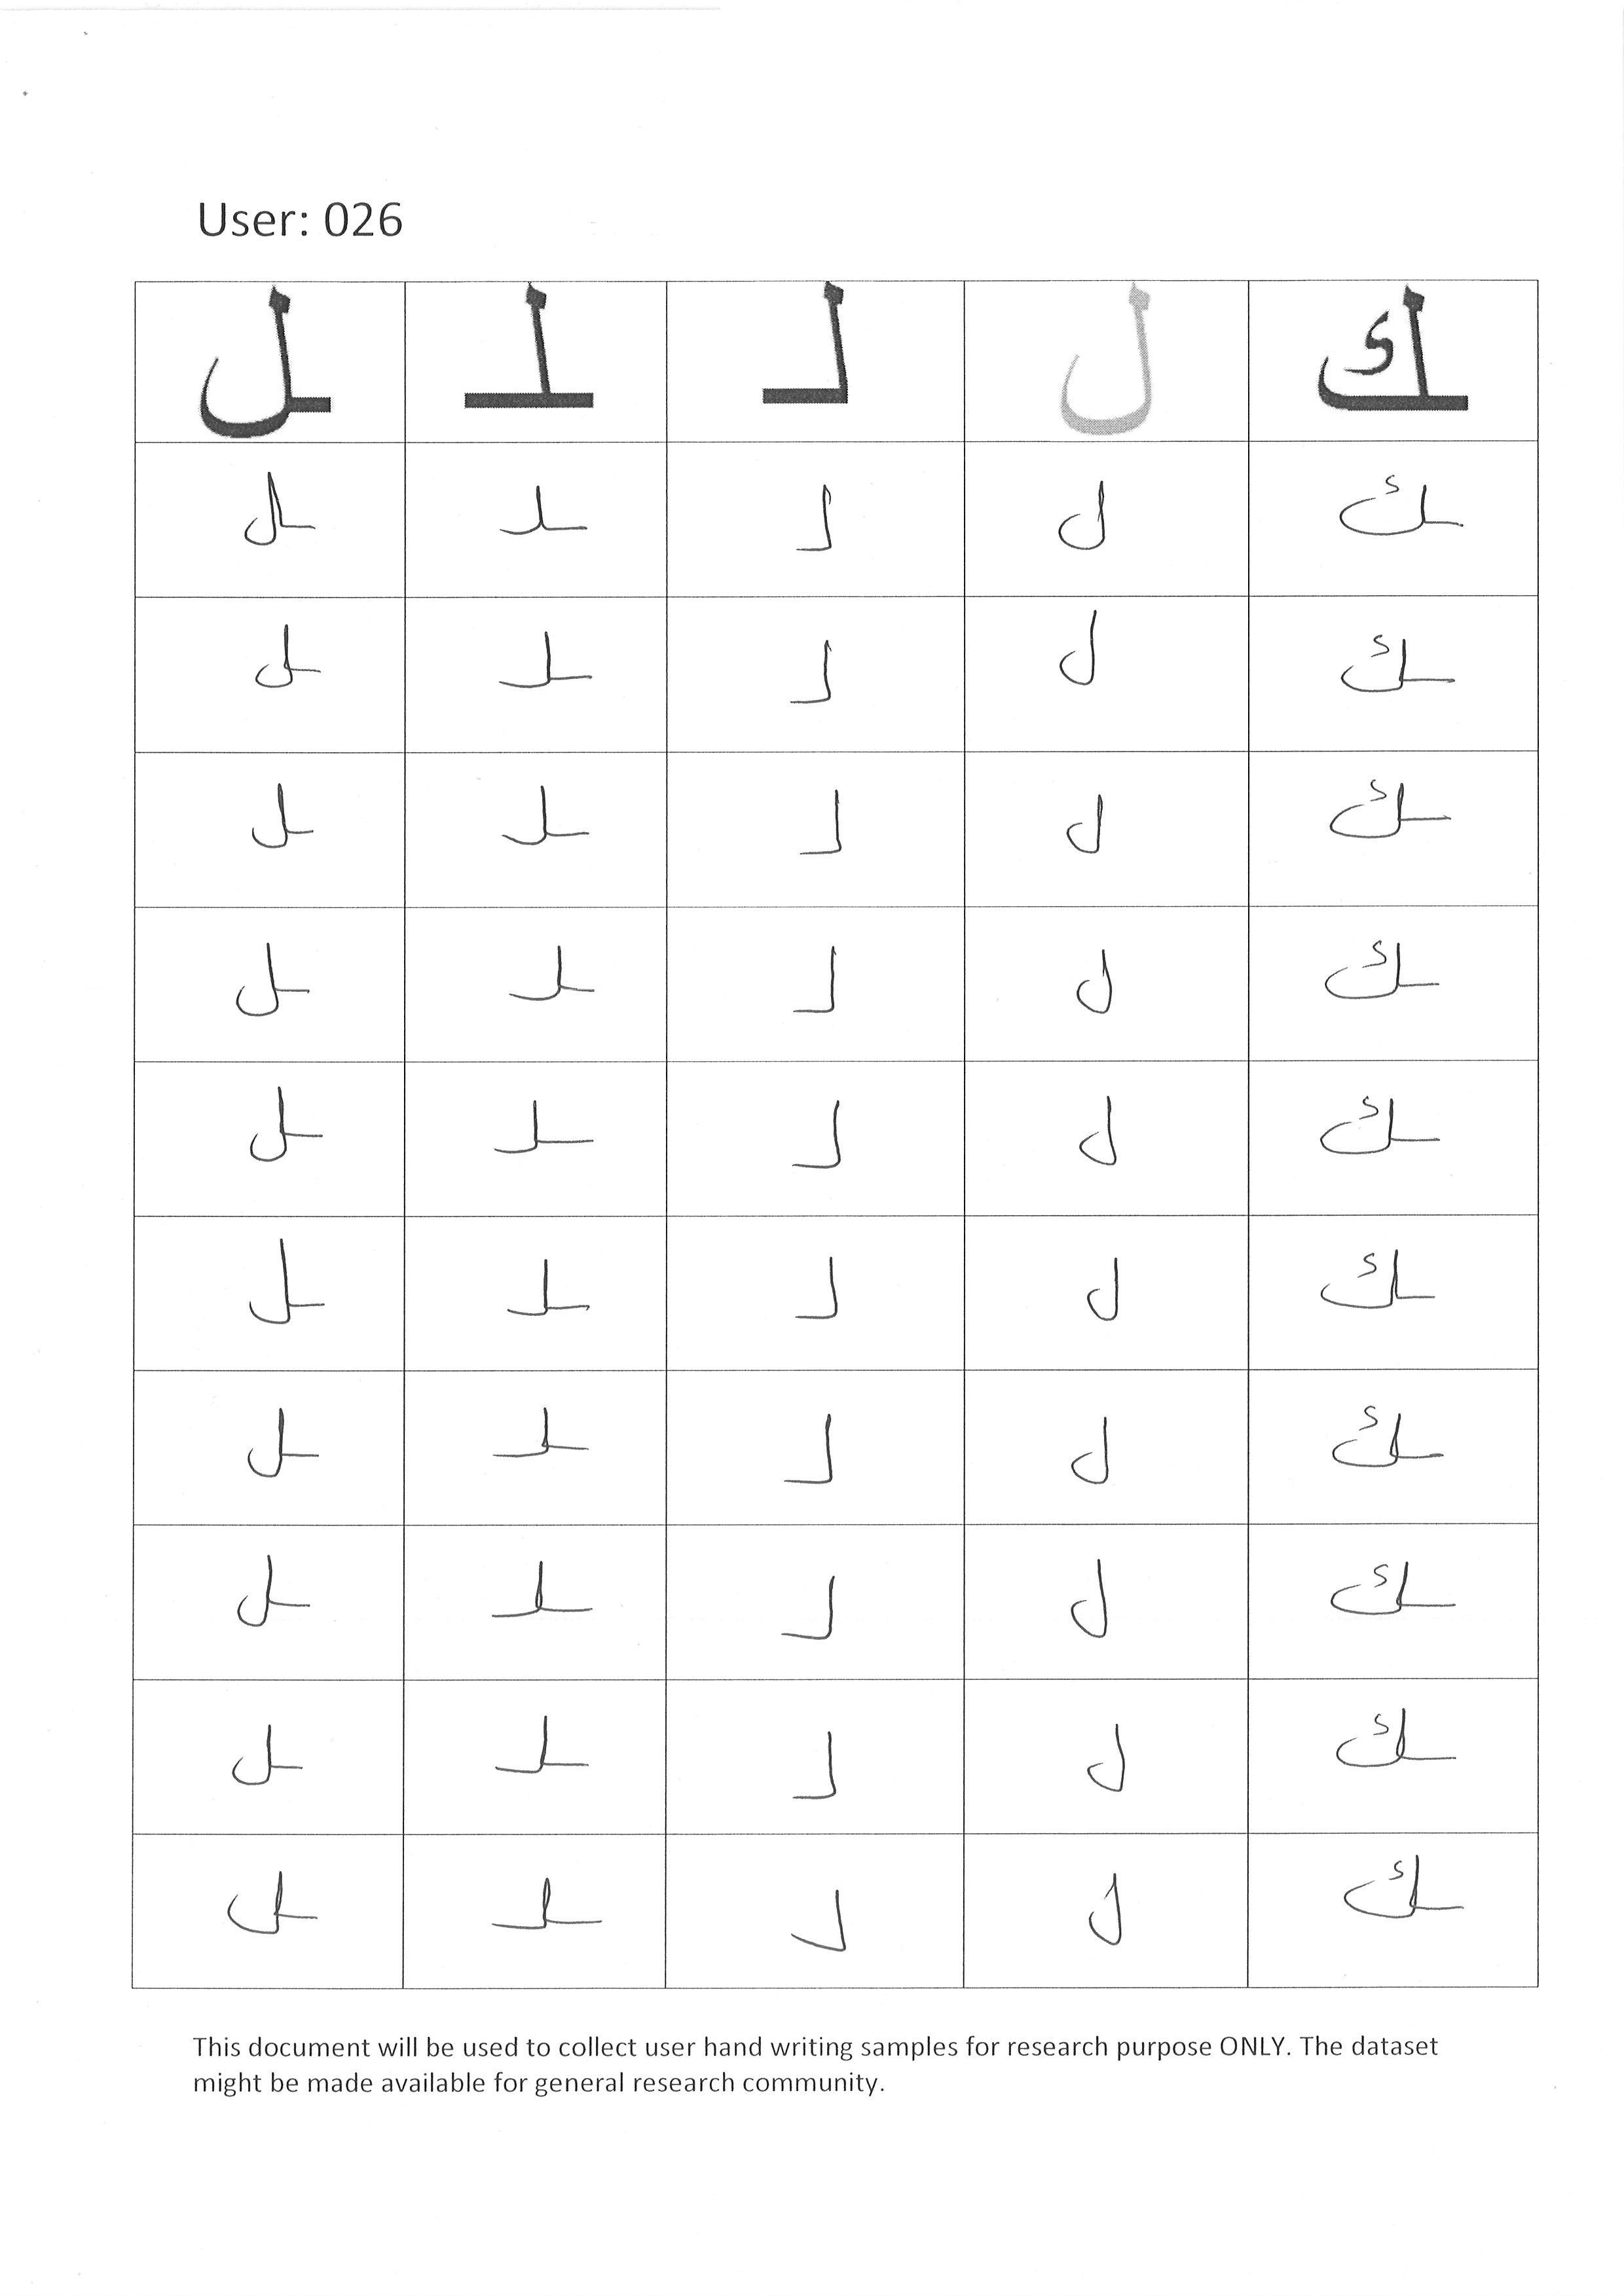 User: 026
ـك ل لـ ـلـ ـل
ـك ل لـ ـلـ ـل
ـك ل لـ ـلـ ـل
ـك ل لـ ـلـ ـل
ـك ل لـ ـلـ ـل
ـك ل لـ ـلـ ـل
ـك ل لـ ـلـ ـل
ـك ل لـ ـلـ ـل
ـك ل لـ ـلـ ـل
ـك ل لـ ـلـ ـل
ـك ل لـ ـلـ ـل
This document will be used to collect user hand writing samples for research purpose ONLY. The dataset
might be made available for general research community.